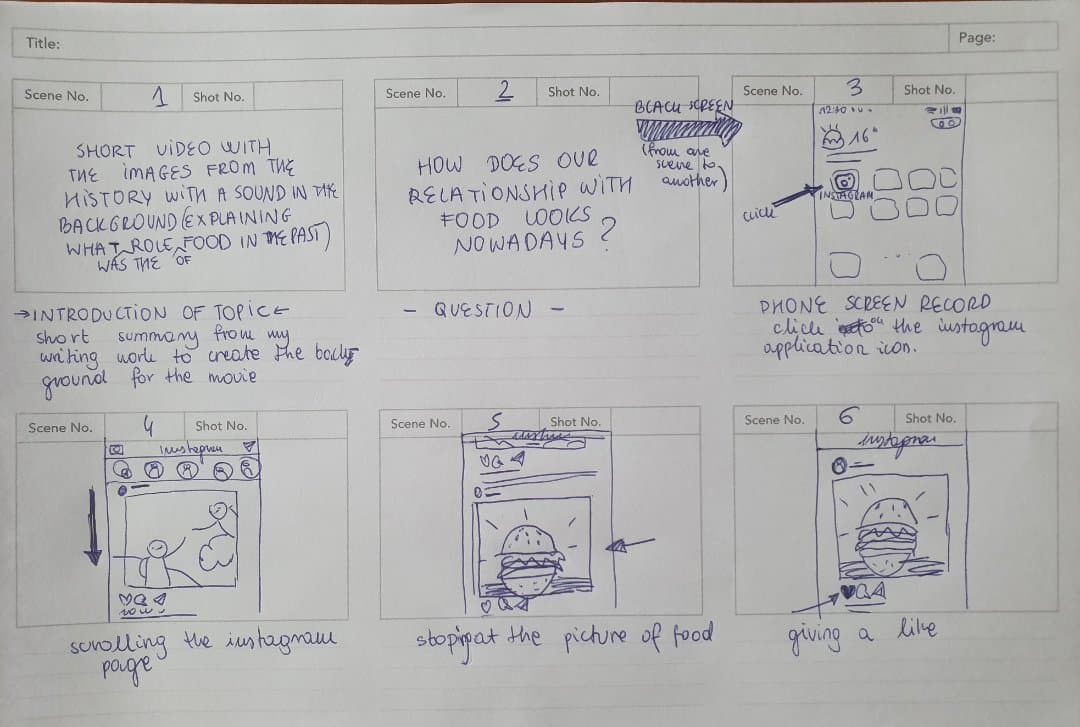 Title:
Page:
Scene No. 1 Shot No.
SHORT VIDEO WITH
THE IMAGES FROM THE
HISTORY WITH A SOUND IN THE
BACKGROUND (EXPLAINING
WHAT ROLE FOOD IN THE PAST)
WAS THE OF
→INTRODUCTION OF TOPIC←
short summary from my
writing work to create the back
ground for the movie
Scene No. 2 Shot No.
HOW DOES OUR
RELATIONSHIP WITH
FOOD LOOKS
NOWADAYS?
- QUESTION -
BLACK SCREEN
(from one
scene to
another)
Scene No. 3 Shot No.
16°
INSTAGRAM
click
PHONE SCREEN RECORD
click on the instagram
application icon.
Scene No. 4 Shot No.
instagram
scrolling the instagram
page
Scene No. 5 Shot No.
stoping at the picture of food
Scene No. 6 Shot No.
instagram
giving a like